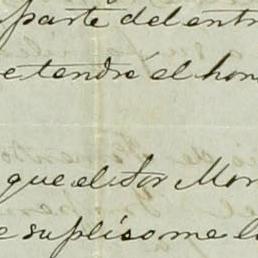 parte del entr
etendré el hon
que el dor Mor
e suplíco me l